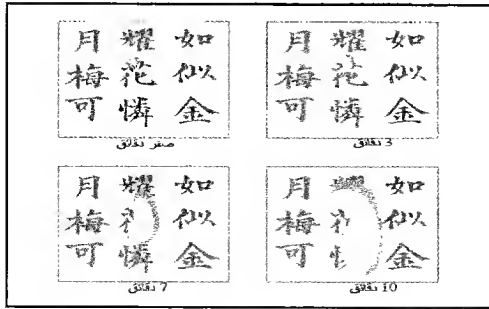 月耀如
梅花似
可憐金
صفر دقائق
月耀如
梅花似
可憐金
3 دقائق
月耀如
梅 似
可憐金
7 دقائق
月耀如
梅 似
可 金
10 دقائق